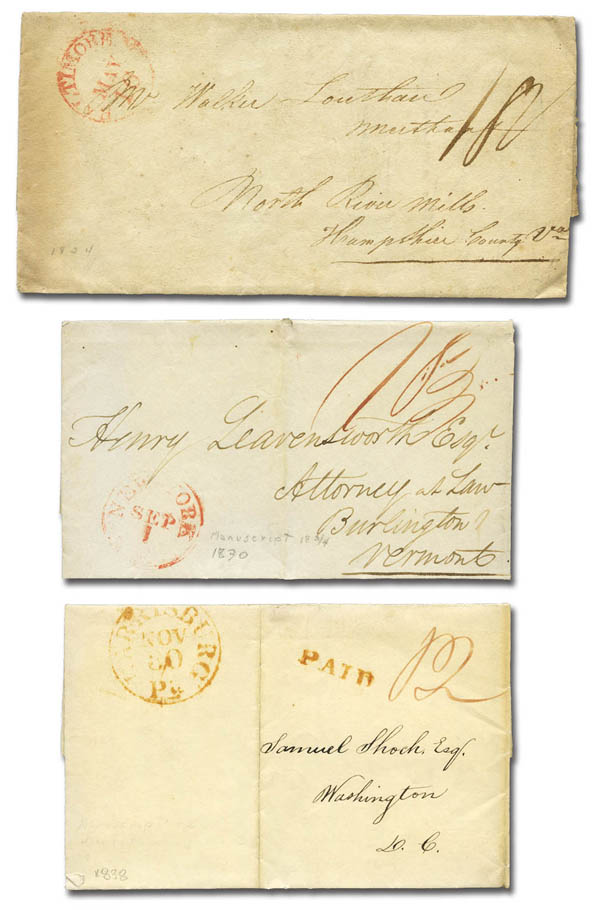 BALTIMORE
MAY
Mr Walker Louthan
Merchant
18¾
North River Mills.
Hampshire County Va
1824
18¾
Henry Leavensworth Esqr.
Attorney at Law
Burlington
Vermont.
NEW YORK
SEP
1
Manuscript 18 3/4
1830
HARRISBURG
NOV
30
Pa.
PAID
12
Samuel Shoch, Esq.
Washington
D. C.
1838